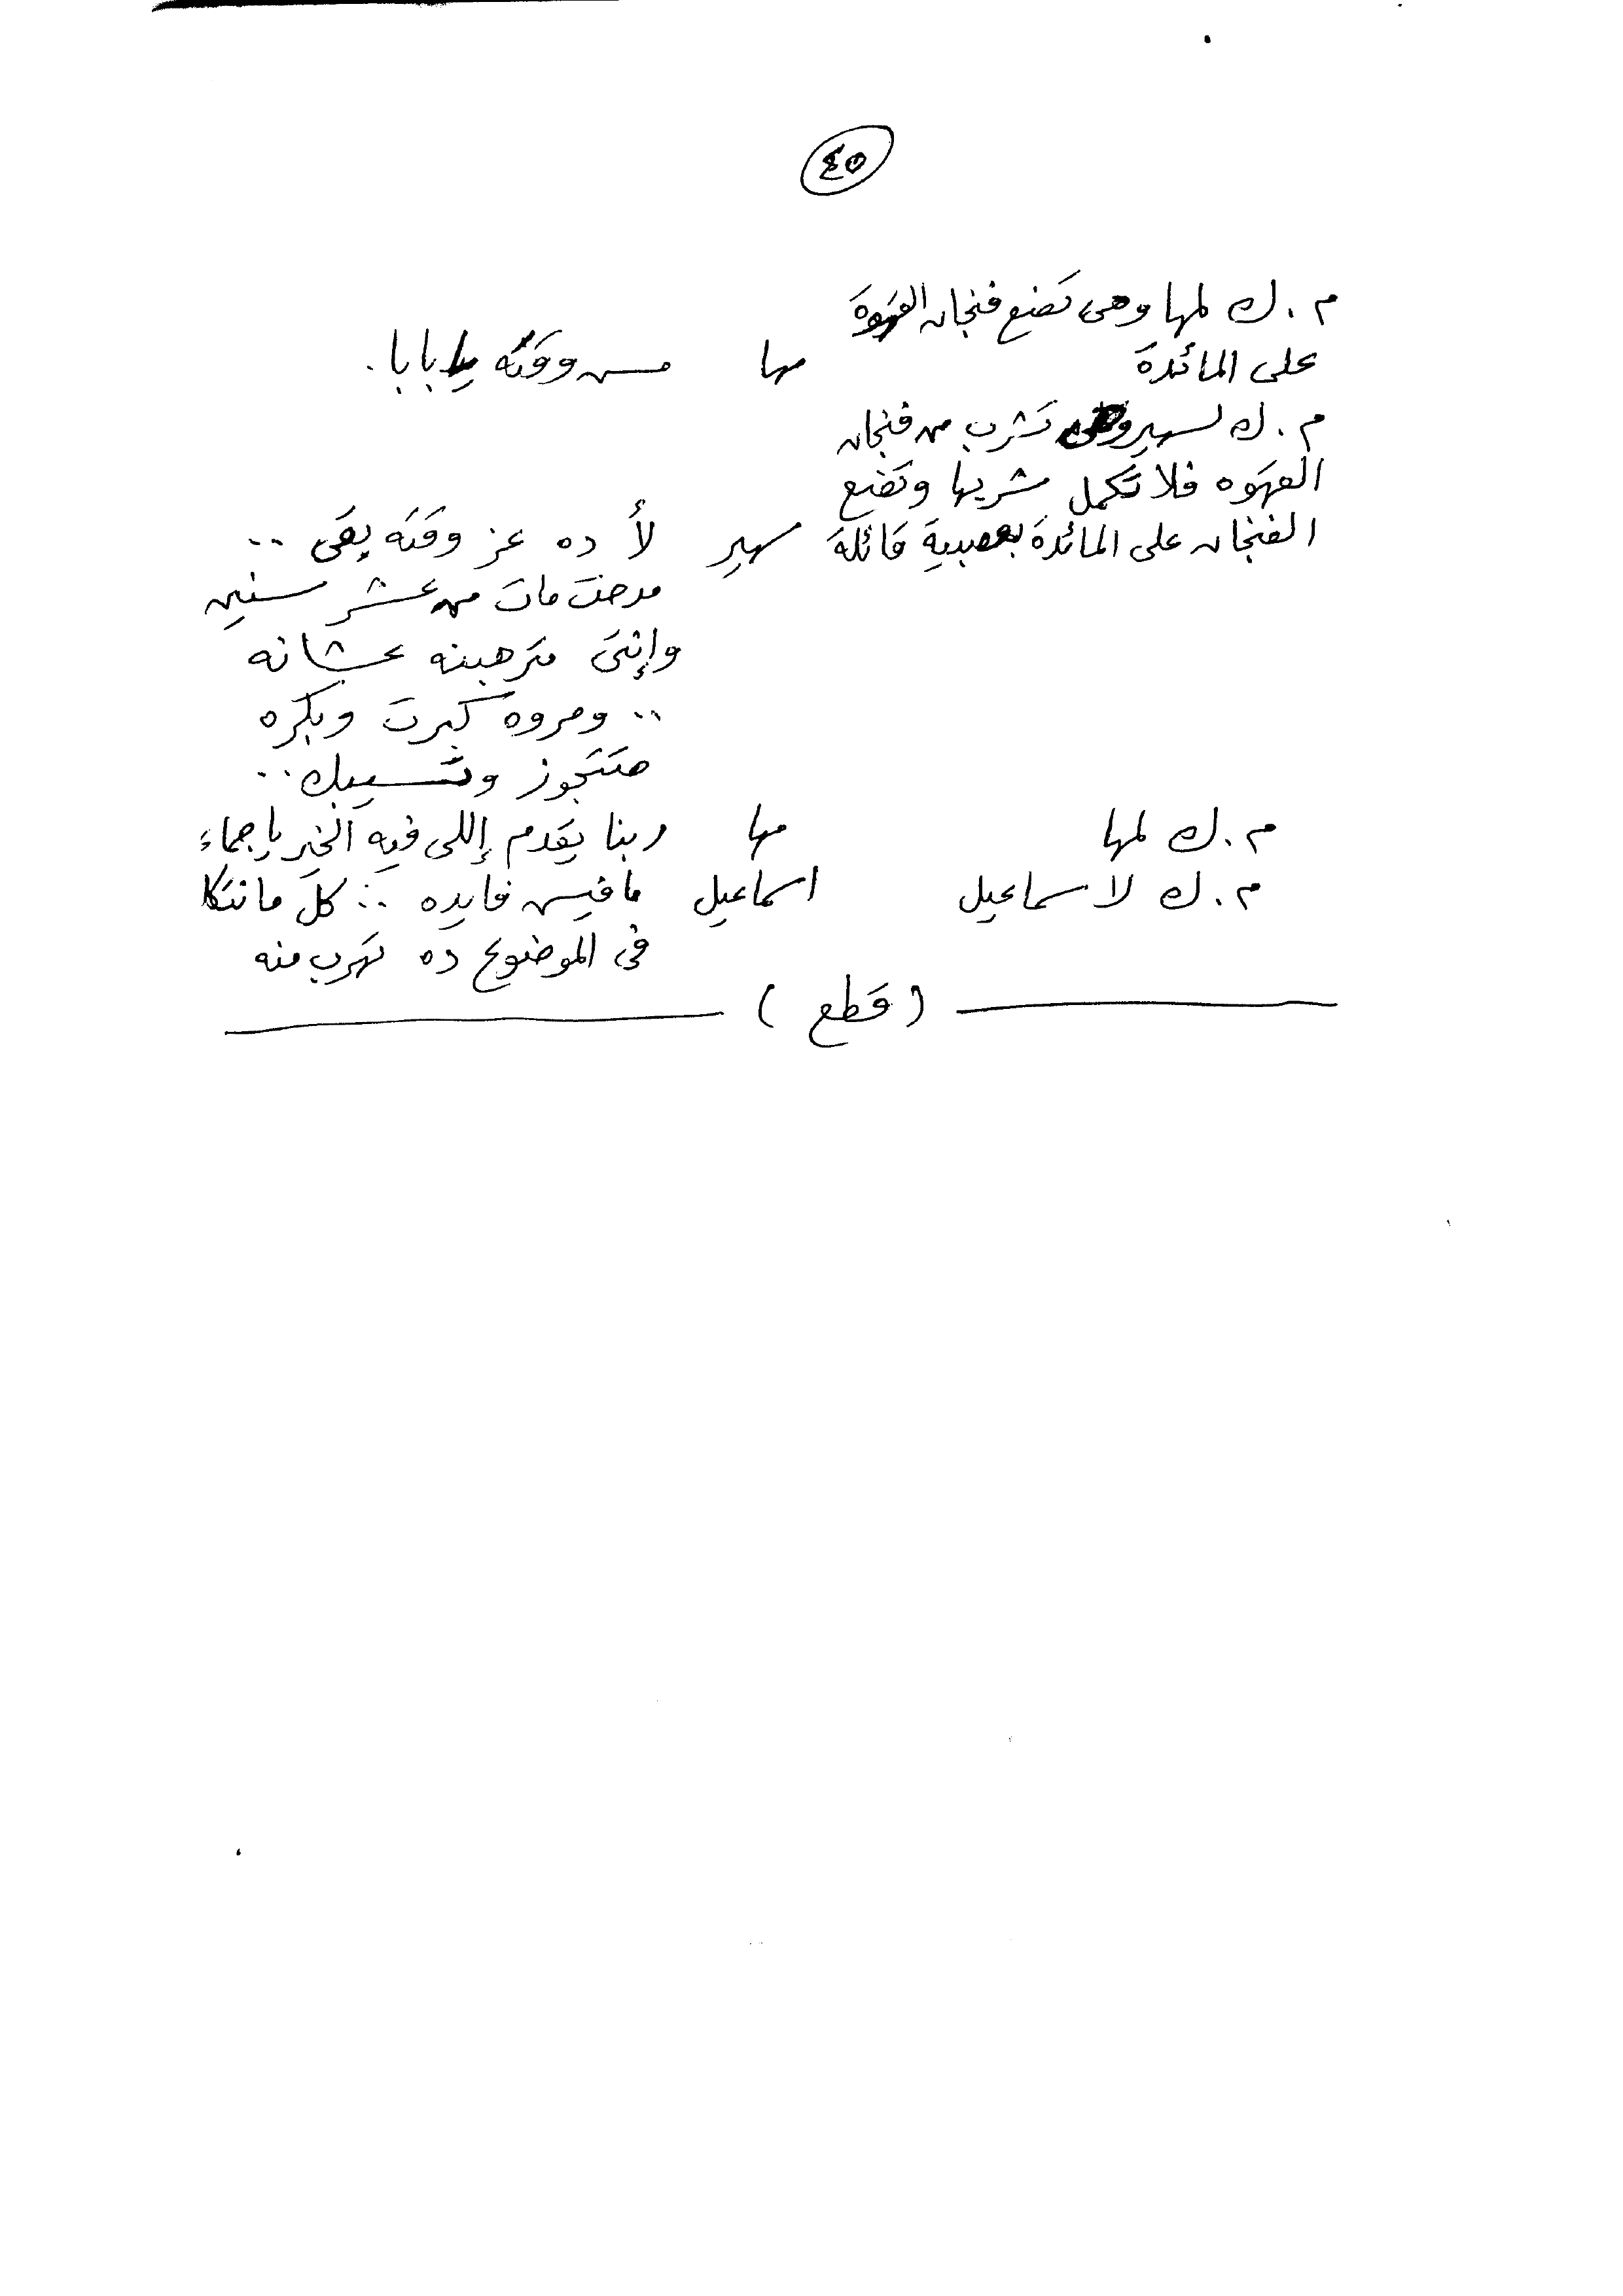 ٤٥
م . ك لمها وهى تضع فنجان القهوة
على المائدة
مها مش وقته يا بابا .
م . ك لسهير وهى تشرب من فنجان
القهوه فلا تكمل شربها وتضع
الفنجان على المائدة بعصبية قائلة سهير لأ ده عز وقته بقى ..
مدحت مات من عشر سنين
وإنتى مترهبنه عشانه
.. ومروه كبرت وبكره
هتتجوز وتسيبك ..
م . ك لمها مها ربنا يقدم إللى فيه الخير يا جماعه
م . ك لاسماعيل اسماعيل مافيش فايده .. كل مانتكلم
فى الموضوع ده تهرب منه
( قطع )